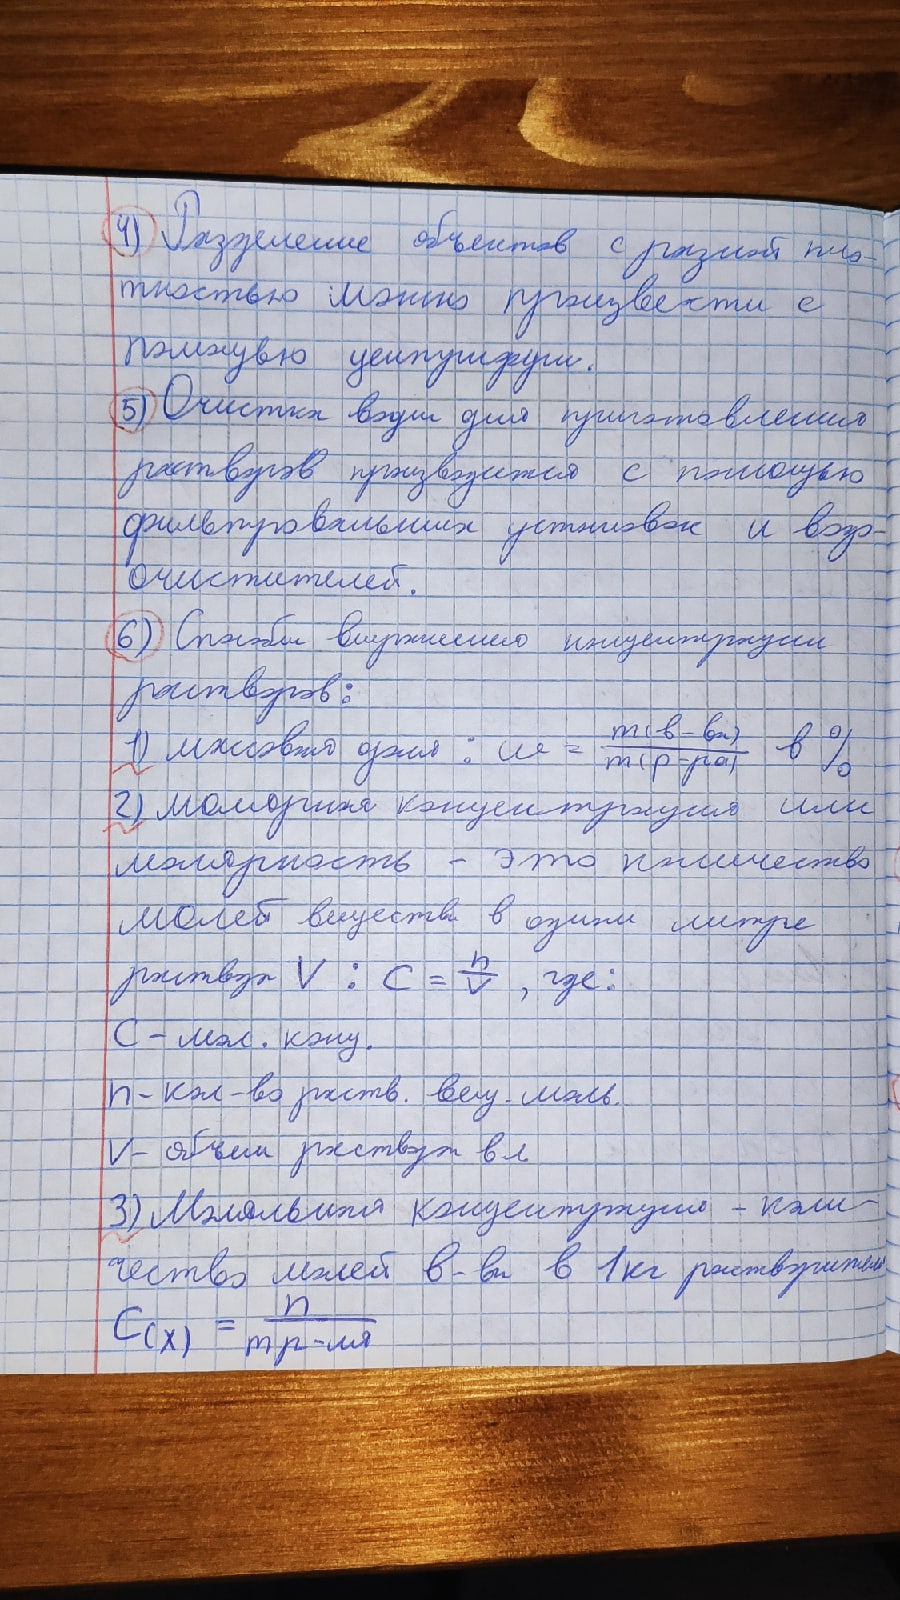 4) Разделение объектов с разной пло-
тностью можно произвести с
помощью центрифуги.
5) Очистка воды для приготовления
растворов производится с помощью
фильтровальных установок и водо-
очистителей.
6) Способы выражения концентрации
растворов:
1) массовая доля: ω = m(в-ва) / m(р-ра) в %
2) молярная концентрация или
молярность - это количество
молей вещества в одном литре
раствора V : C = n/V , где:
C - мол. конц.
n - кол-во раств. вещ. моль.
V - объем раствора в л
3) Моляльная концентрация - коли-
чество молей в-ва в 1кг растворителя
C(x) = n / m р-ля